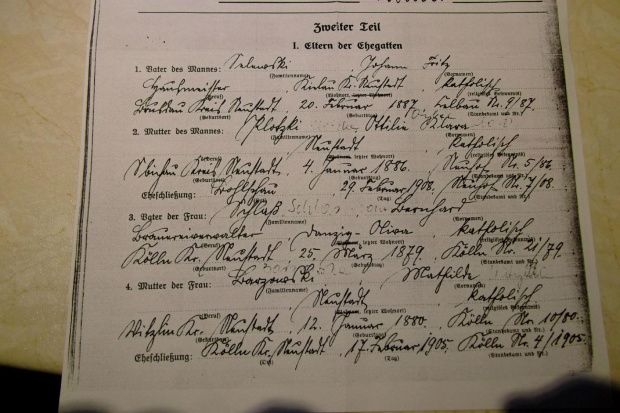 Zweiter Teil
I. Eltern der Ehegatten
1. Vater des Mannes: Selewski Johann Fritz
(Familienname) (Vornamen)
Kielau Kr. Neustadt katholisch
(Beruf) (Wohnort, letzter Wohnort) (religiöses Bekenntnis)
Kreis Neustadt, 20. Februar 1887. Nr. 9/87.
(Geburtsort) (Geburtstag) (Standesamt und Nr.)
2. Mutter des Mannes: Klotzki Ottilie Klara
(Familienname) (Vornamen)
Neustadt katholisch
(Wohnort, letzter Wohnort) (religiöses Bekenntnis)
Kreis Neustadt, 4. Januar 1886. Neuhof Nr. 5/86
(Geburtsort) (Geburtstag) (Standesamt und Nr.)
Eheschließung: 29. Februar 1908, Neuhof Nr. 7/08.
(Ort) (Tag) (Standesamt und Nr.)
3. Vater der Frau: Schloß Bernhard
(Familienname) (Vornamen)
Brauereiverwalter Danzig-Oliva katholisch
(Beruf) (Wohnort, letzter Wohnort) (religiöses Bekenntnis)
Kölln Kr. Neustadt, 25. März 1879. Kölln Nr. 21/79.
(Geburtsort) (Geburtstag) (Standesamt und Nr.)
4. Mutter der Frau: Barzowski Mathilde
(Familienname) (Vornamen)
Neustadt katholisch
(Wohnort, letzter Wohnort) (religiöses Bekenntnis)
Kr. Neustadt, 12. Januar 1880. Kölln Nr. 10/80.
(Geburtsort) (Geburtstag) (Standesamt und Nr.)
Eheschließung: Kölln Kr. Neustadt, 17. Februar 1905. Kölln Nr. 4/1905.
(Ort) (Tag) (Standesamt und Nr.)